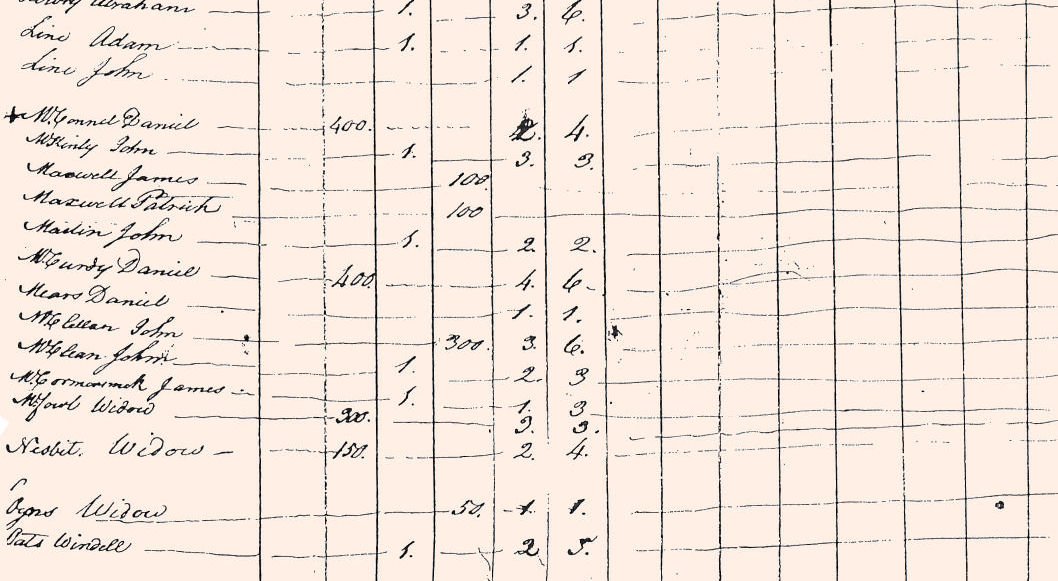 Abraham 1. 3. 6.
Line Adam 1. 1. 1.
Line John 1. 1
McConnel Daniel 400. 2. 4.
McKinly John 1. 3. 3.
Maxwell James 100
Maxwell Patrick 100
Martin John 1. 2. 2.
McCurdy Daniel 400. 4. 6.
Mears Daniel 1. 1.
McClellan John 300. 3. 6.
McClean John 1. 2. 3
McCormmick James 1. 1. 3
Widow 300. 3. 3.
Nesbit. Widow 150. 2. 4.
Widow 50. 1. 1.
Windell 1. 2 5.